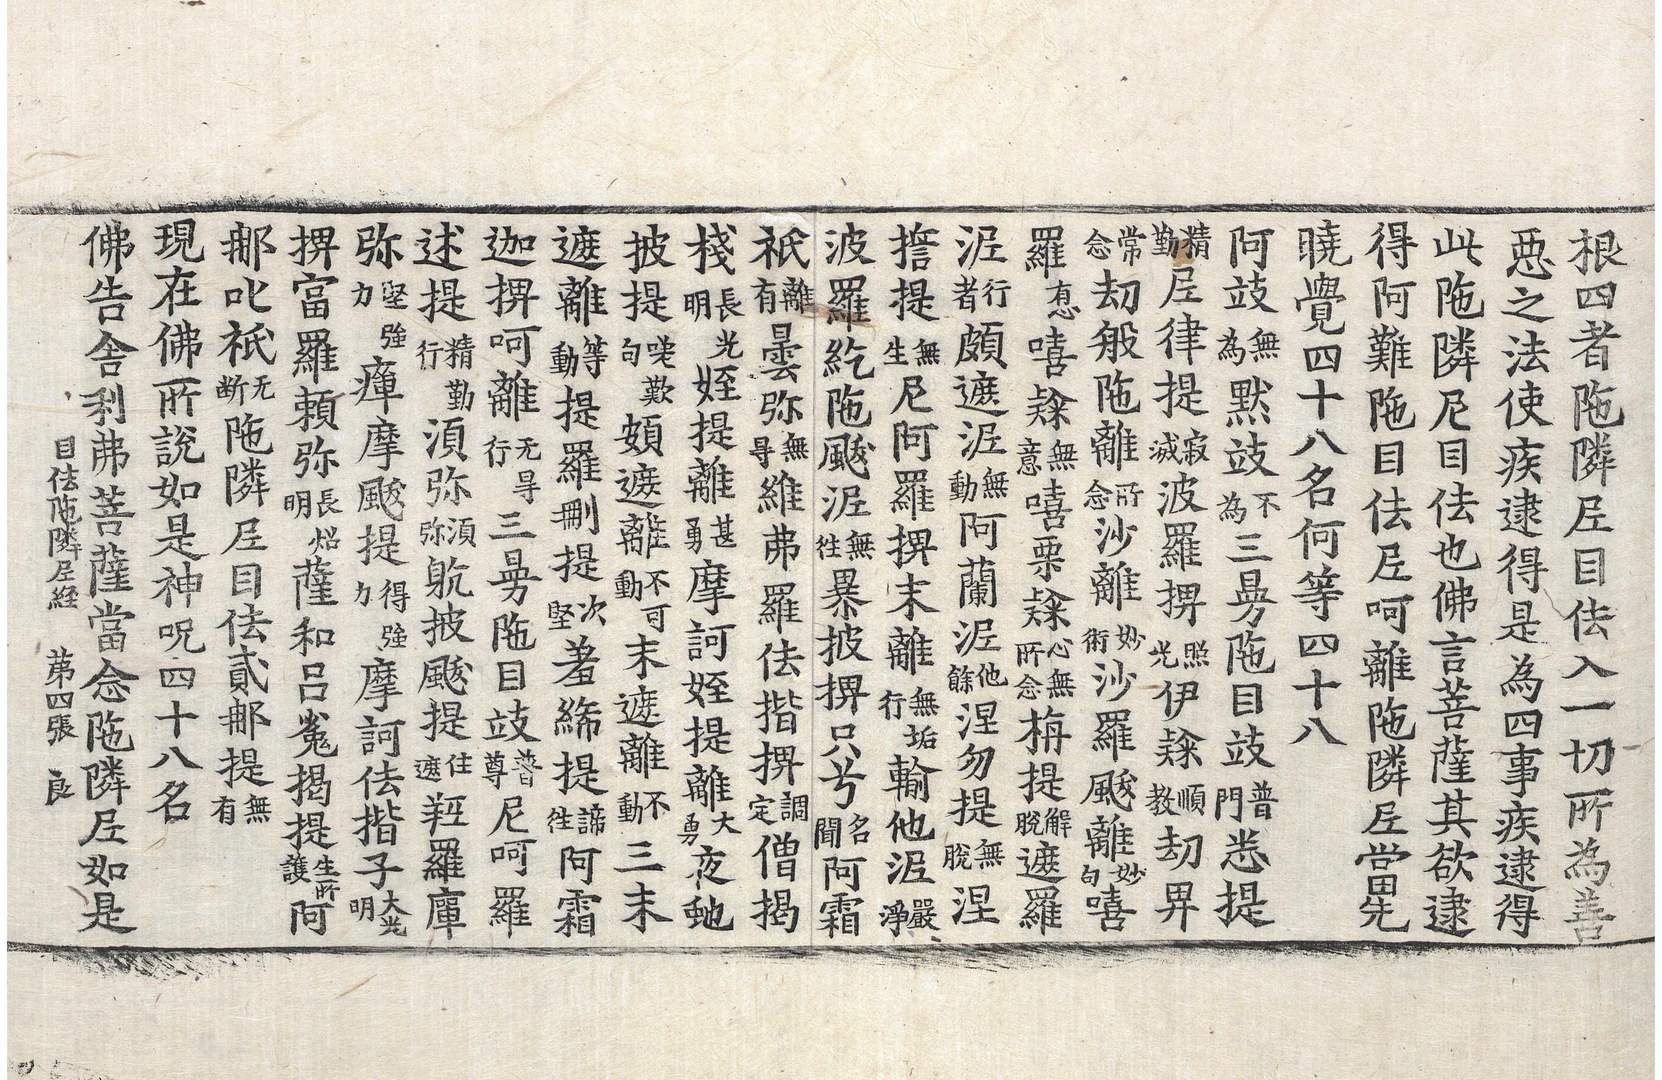 根四者陁隣尼目佉入一切所為善
惡之法使疾逮得是為四事疾逮得
此陁隣尼目佉也佛言菩薩其欲逮
得阿難陁目佉尼呵離陁隣尼當先
曉覺四十八名何等四十八
阿豉無為默豉不為三曼陁目豉普門悉提
精勤尼律提寂滅波羅㨽照光伊㯤順教劫畀
常念劫般陁離所念沙離妙術沙羅颰離妙句嘻
羅有思嘻㯤無意嘻栗㯤心無所念栴提解脫遮羅
泥行者頗遮泥無動阿蘭泥他餘涅勿提無脫涅
揞提無生尼阿羅㨽末離無垢行輸他泥嚴淨
波羅紇陁颰泥無往暴披㨽只兮名聞阿霜
祇離有曇弥無㝵維弗羅佉揩㨽調定僧揭
棧長光明姪提離甚勇摩訶姪提離大勇夜虵
披提嘆歎句頗遮離不可動末遮離不動三末
遮離等動提羅刪提次堅羞絺提諦往阿霜
迦㨽呵離无㝵行三曼陁目豉普尊尼呵羅
述提精勤行湏弥湏弥䠶披颰提住遮䩭羅庫
弥堅強力瘒摩颰提得強力摩訶佉揩子大光明
㨽當羅頼弥長炤明薩和呂㝹揭提生所護阿
那叱祇无斷陁隣尼目佉貳那提無有
現在佛所說如是神呪四十八名
佛告舍利弗菩薩當念陁隣尼如是
目佉陁隣尼経　苐四張　良